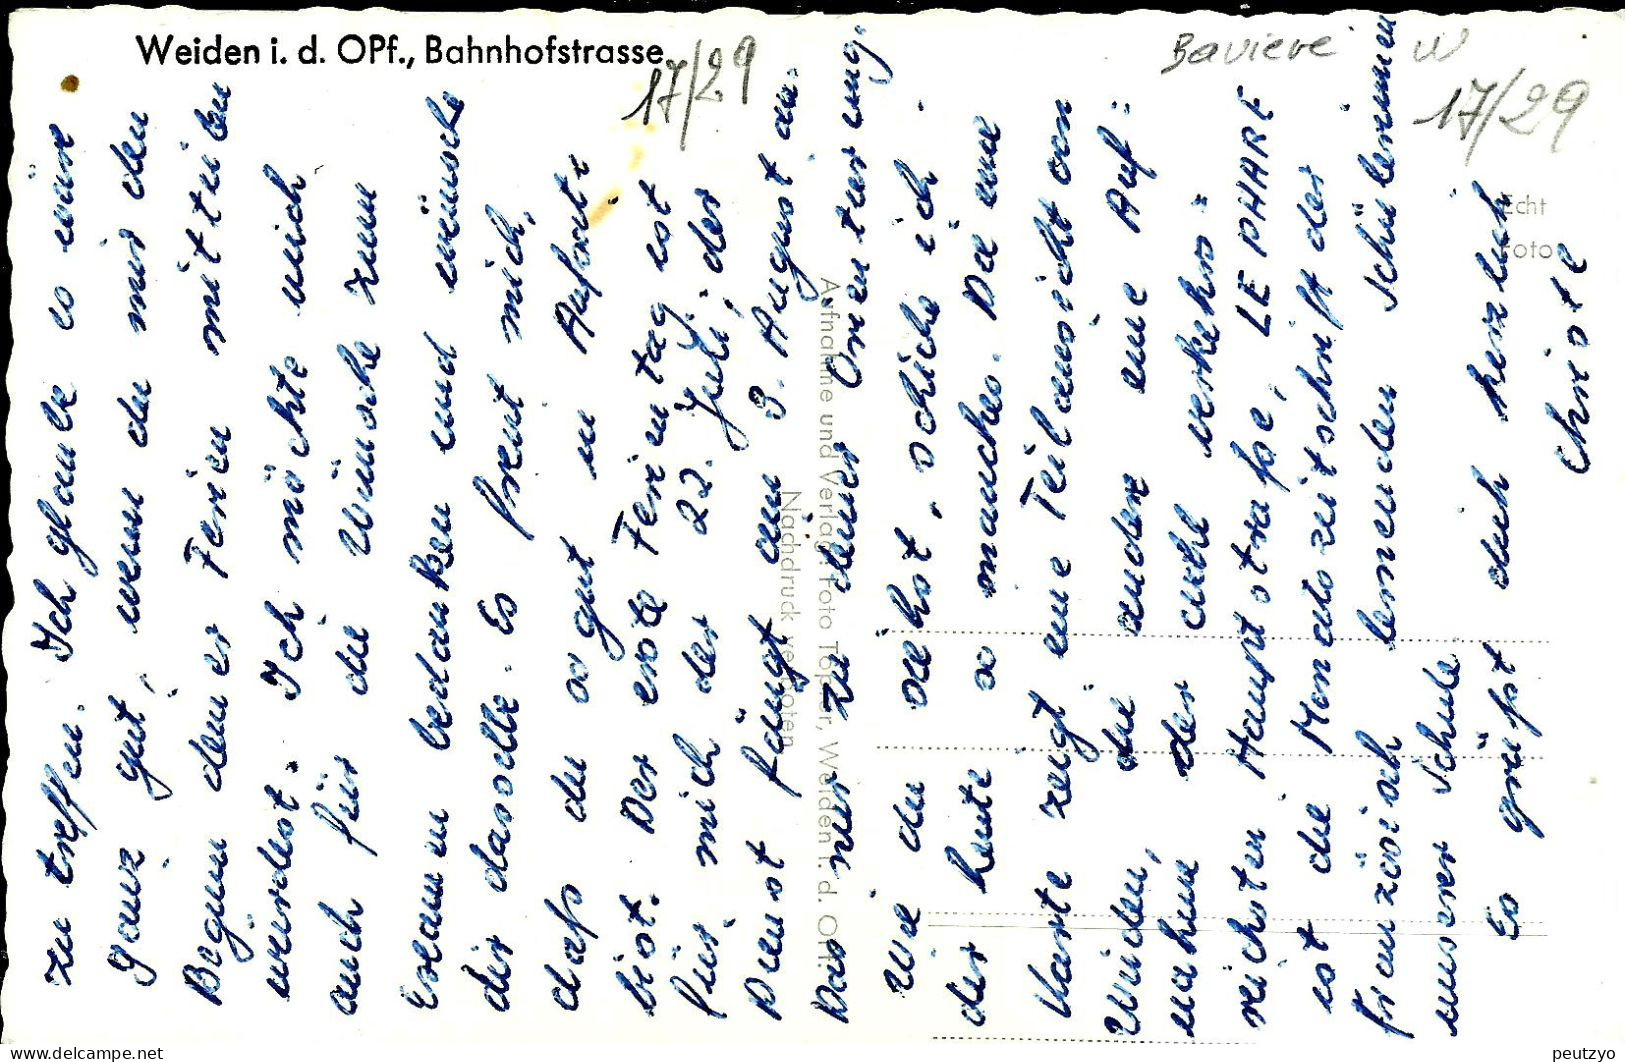 Weiden i. d. OPf., Bahnhofstrasse
17/29
Baviere W
17/29
Echt
Foto
Aufnahme und Verlag: Foto Töpfer, Weiden i. d. OPf.
Nachdruck verboten
zu treffen. Ich glaube es wäre
ganz gut, wenn du mir den
Beginn deiner Ferien mitteilen
würdest. Ich möchte mich
auch für die Wünsche zum
Examen bedanken und wünsche
dir dasselbe. Es freut mich,
daß du so gut in Aufsatz
bist. Der erste Ferientag ist
für mich der 22. Juli; der
Dienst fängt am 3. August an.
Das nur zu deiner Orientierung.
Wie du siehst, schicke ich
dir heute so manches. Die eine
Karte zeigt eine Teilansicht von
Weiden, die andere eine Auf=
nahme der wohl verkehrs=
reichsten Hauptstraße, LE PHARE
ist die Monatszeitschrift der
französisch lernenden Schülerinnen
unserer Schule
Es grüßt dich herzlich
Christl
peutzyo